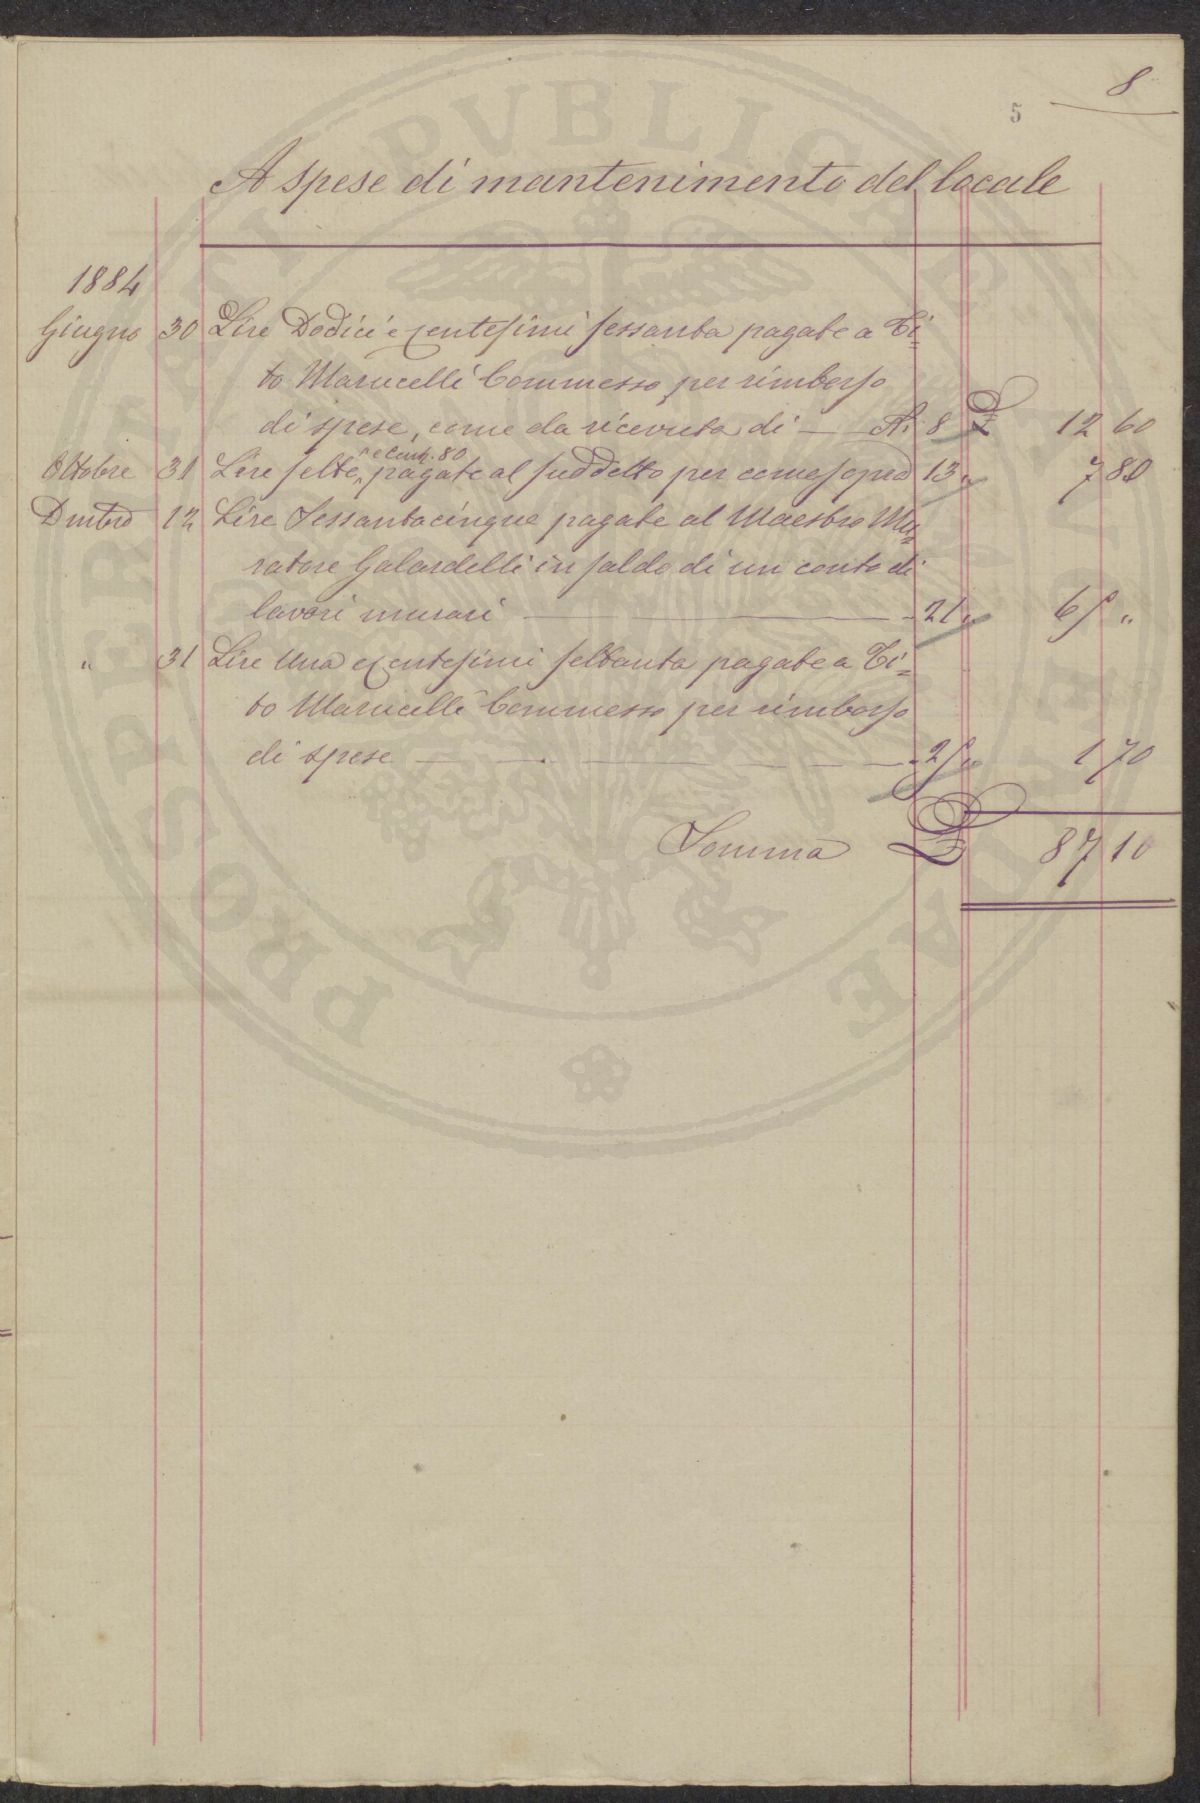 8
5
A spese di mantenimento del locale
1884
Giugno 30 Lire Dodici e centesimi sessanta pagate a Ti=
to Marucelli Commesso per rimborso
di spese, come da ricevuta di — N. 8 £ 12 60
e Cent. 80
Ottobre 31 Lire sette, pagate al suddetto per come sopra 13 " 7 80
Dmbre 12 Lire Sessantacinque pagate al Maestro Mu=
ratore Galardelli in saldo di un conto di
lavori murari — 21 " 65 "
" 31 Lire Una e centesimi settanta pagate a Ti=
to Marucelli Commesso per rimborso
di spese — 25 " 1 70
Somma £ 87 10
PROSPERITATI PVBLICAE AVGENDAE